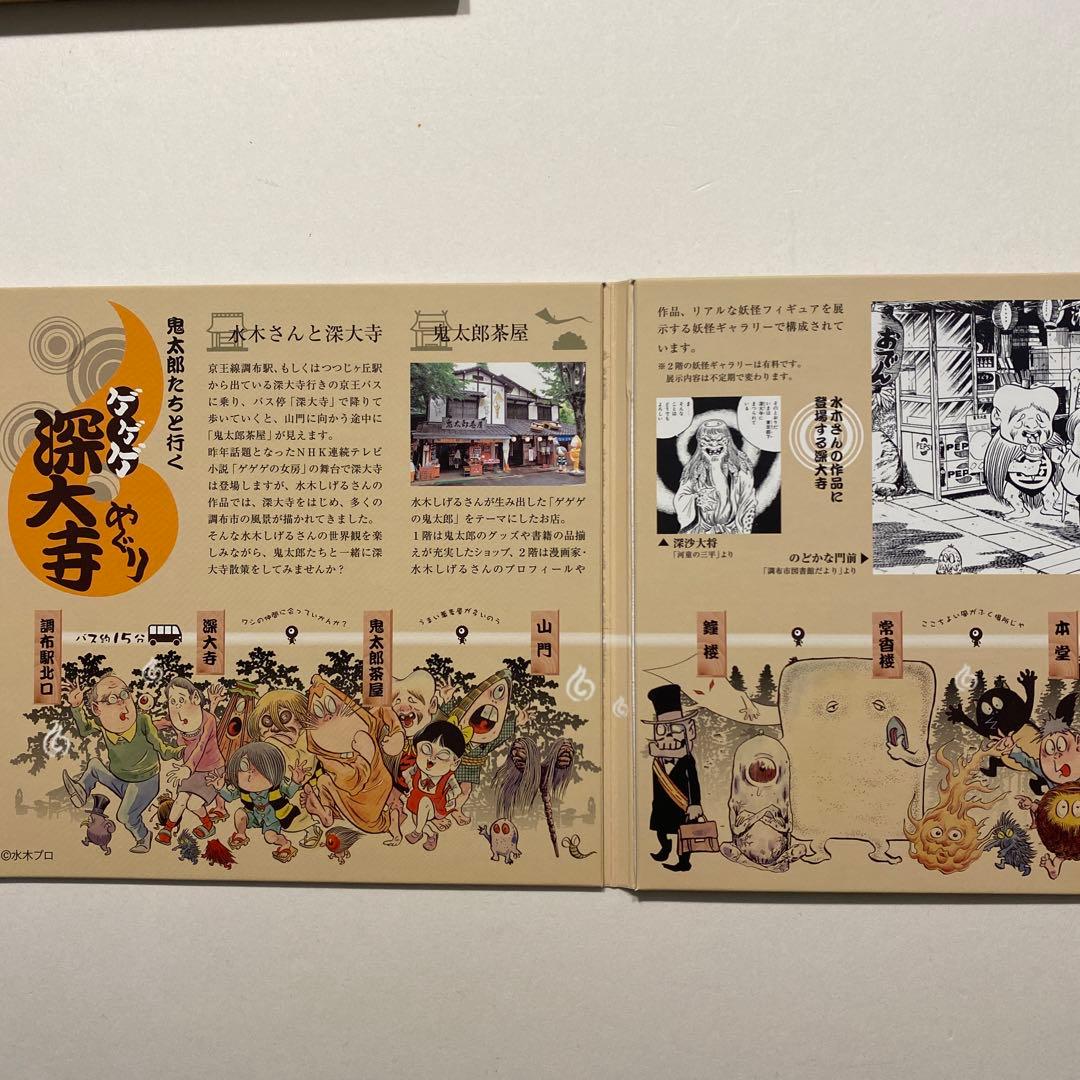 鬼太郎たちと行く
ゲゲゲゲ
深大寺
めぐり
水木さんと深大寺
京王線調布駅、もしくはつつじヶ丘駅
から出ている深大寺行きの京王バス
に乗り、バス停「深大寺」で降りて
歩いていくと、山門に向かう途中に
「鬼太郎茶屋」が見えます。
昨年話題となったNHK連続テレビ
小説「ゲゲゲの女房」の舞台で深大寺
は登場しますが、水木しげるさんの
作品では、深大寺をはじめ、多くの
調布市の風景が描かれてきました。
そんな水木しげるさんの世界観を楽
しみながら、鬼太郎たちと一緒に深
大寺散策をしてみませんか？
鬼太郎茶屋
鬼太郎茶屋
水木しげるさんが生み出した「ゲゲゲ
の鬼太郎」をテーマにしたお店。
１階は鬼太郎のグッズや書籍の品揃
えが充実したショップ、２階は漫画家・
水木しげるさんのプロフィールや
作品、リアルな妖怪フィギュアを展
示する妖怪ギャラリーで構成されて
います。
※２階の妖怪ギャラリーは有料です。
展示内容は不定期で変わります。
▲ 深沙大将
「河童の三平」より
水木さんの作品に
登場する深大寺
のどかな門前▶
「調布市図書館だより」より
おでん
調布駅北口
バス約15分
深大寺
ワシの仲間に会っていかんか？
鬼太郎茶屋
うまい蕎麦屋が多いのう
山門
鐘楼
常香楼
ここちよい風がふく場所じゃ
本堂
©水木プロ